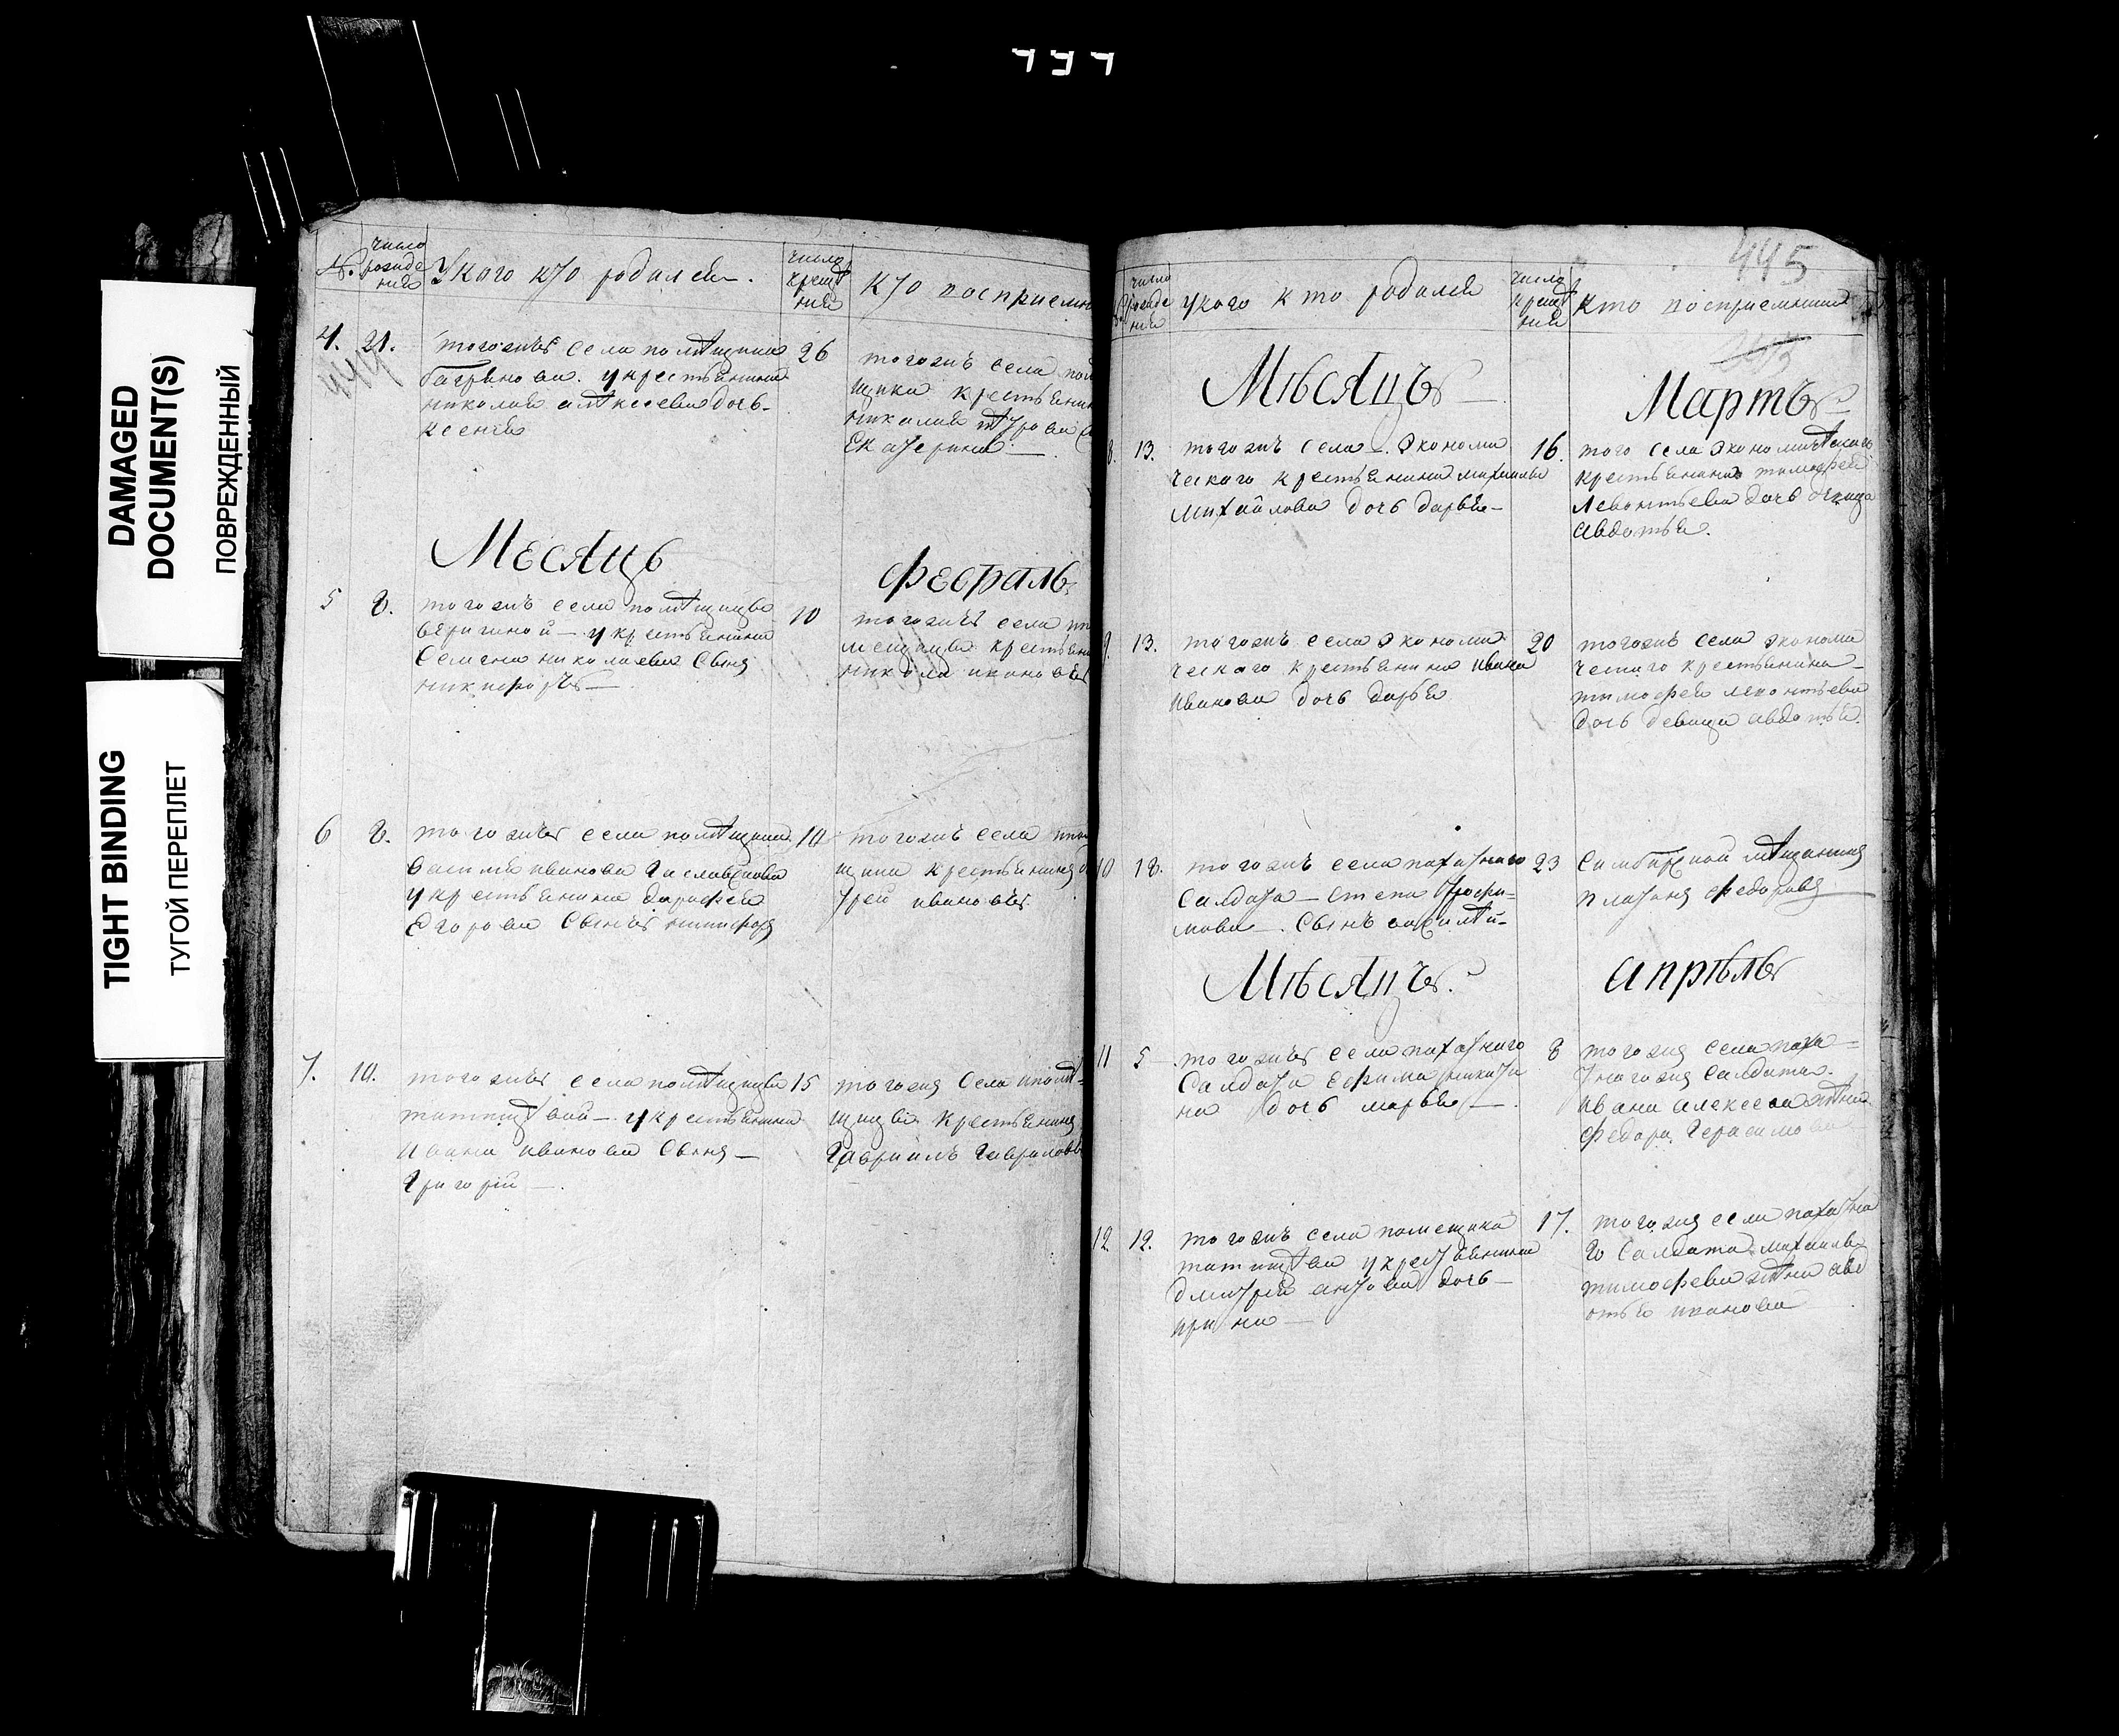 DAMAGED
DOCUMENT(S)
ПОВРЕЖДЕННЫЙ
TIGHT BINDING
ТУГОЙ ПЕРЕПЛЕТ
№.
число
рожде
нiя
У кого кто родился.
число
креще
нiя
Кто восприемни
4.
21.
тогожъ села помѣщика
багрянова. у крестьянина
николая алѣксеева дочь
ксенiя
26
тогожъ села
щика крестьянин
николая
Екатерина
Месяцъ
февраль
5
8.
тогожъ села помѣщицы
веригиной — у крестьянина
Семена николаева Сынъ
никифоръ —
10
тогожъ села
мещицы крестьяни
никола ивановъ
6
8.
тогожъ села помѣщика
василья иванова
у крестьянина дорофея
Егорова Сынъ
10
тогожъ села
щика крестьянинъ
ивановъ
7.
10.
тогожъ села помѣщицы
у крестьянина
Ивана иванова Сынъ —
Григорiй —.
15
тогожъ Села помѣ
щицы крестьянинъ
Гаврiилъ Гавриловъ
445
число
рожде
нiя
у кого кто родился
число
креще
нiя
кто восприемники
Мѣсяцъ
Мартъ
8.
13.
тогожъ села Экономи
ческаго крестьянина михаила
михайлова дочь дарья —
16.
того села Экономическаго
крестьянина тимофея
Левонтьева дочь девица
Авдотья.
9.
13.
тогожъ села Экономи
ческаго крестьянина ивана
Иванова дочь дарья
20
тогожъ села экономи
ческаго крестьянина
тимофея левонтьева
дочь девица авдотья.
10
18.
тогожъ села пахатнаго
Салдата — степа трофи=
мова —. Сынъ василѣй —
23
Симбирской мѣщанинъ
платонъ федоровъ
Мѣсяцъ.
апрѣль
11
5
тогожъ села пахатнаго
Салдата Ефима никити
на дочь марья —
8
тогожъ села паха=
тнагожъ Салдата.
Ивана алексеева жена
федора Герасимова
12
12.
тогожъ села помещика
татищева у крестьянина
дмитрей антова дочь —
ирина —
17.
тогожъ села пахатна
го Салдата михаила
тимофева жена авд
отья иванова